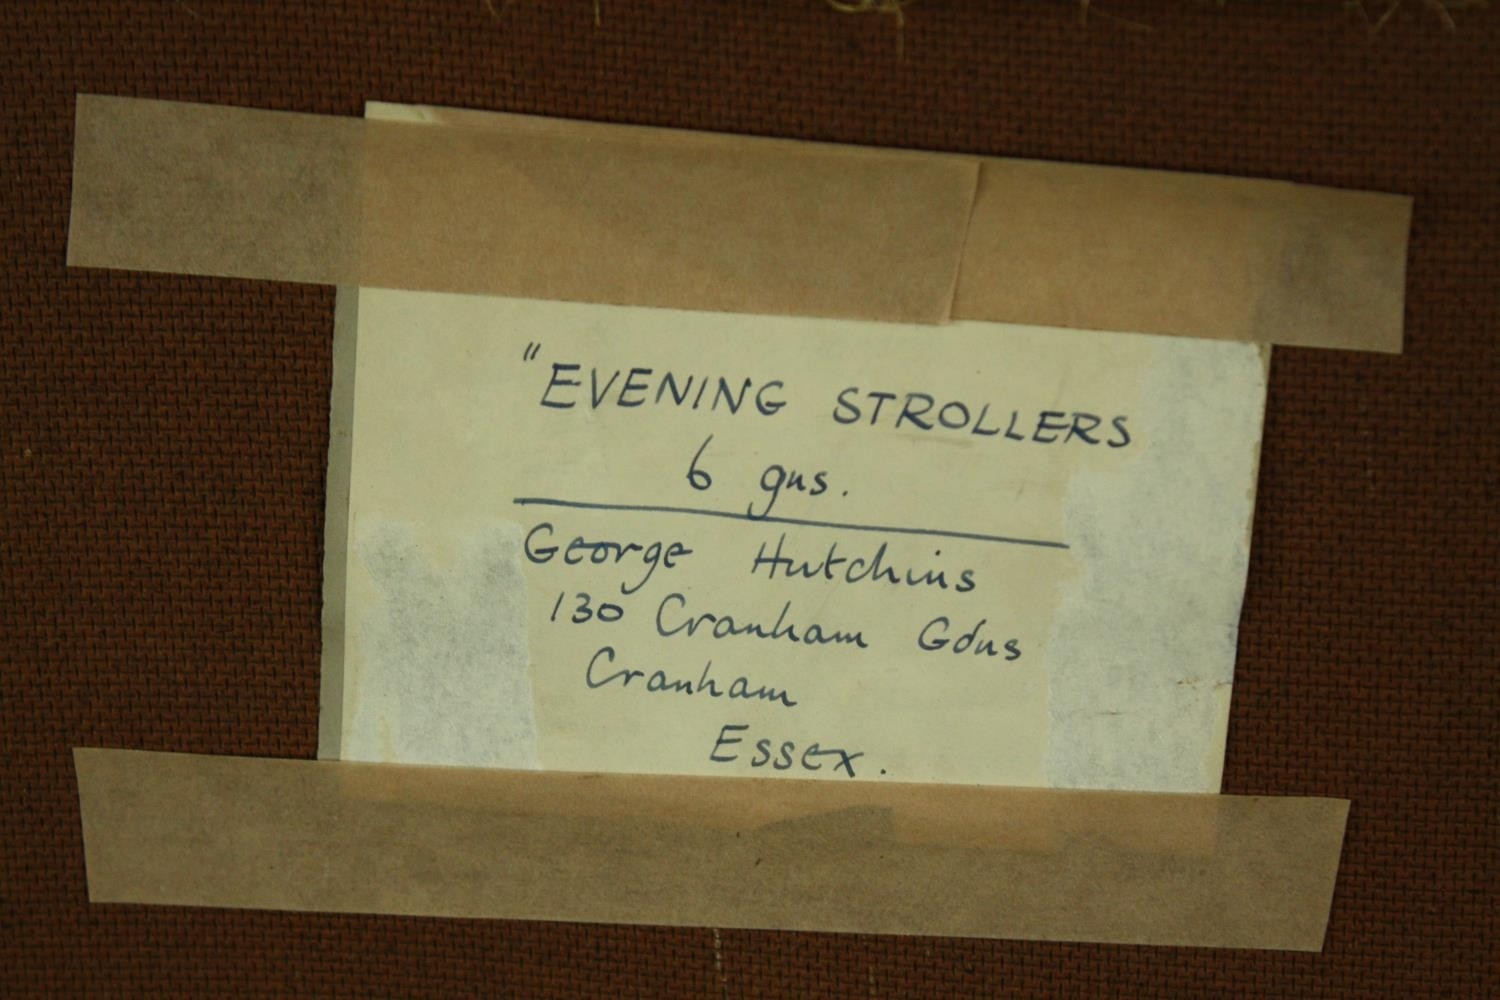 "EVENING STROLLERS
6 gns.
George Hutchins
130 Cranham Gdns
Cranham
Essex.